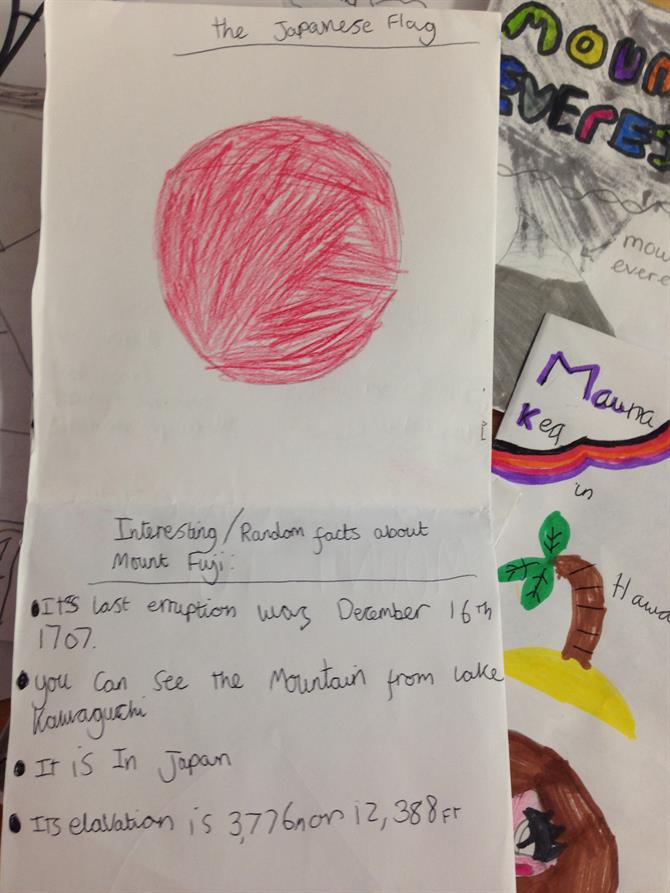 the Japanese Flag
Interesting/Random facts about
Mount Fuji:
•It's last erruption was December 16th
1707.
•you can see the Mountain from Lake
Kawaguchi
•It is In Japan
•Its elavation is 3,776m or 12,388 FT
MOUN
EVERES
mou
evere
Mauna
Kea
in
Hawa